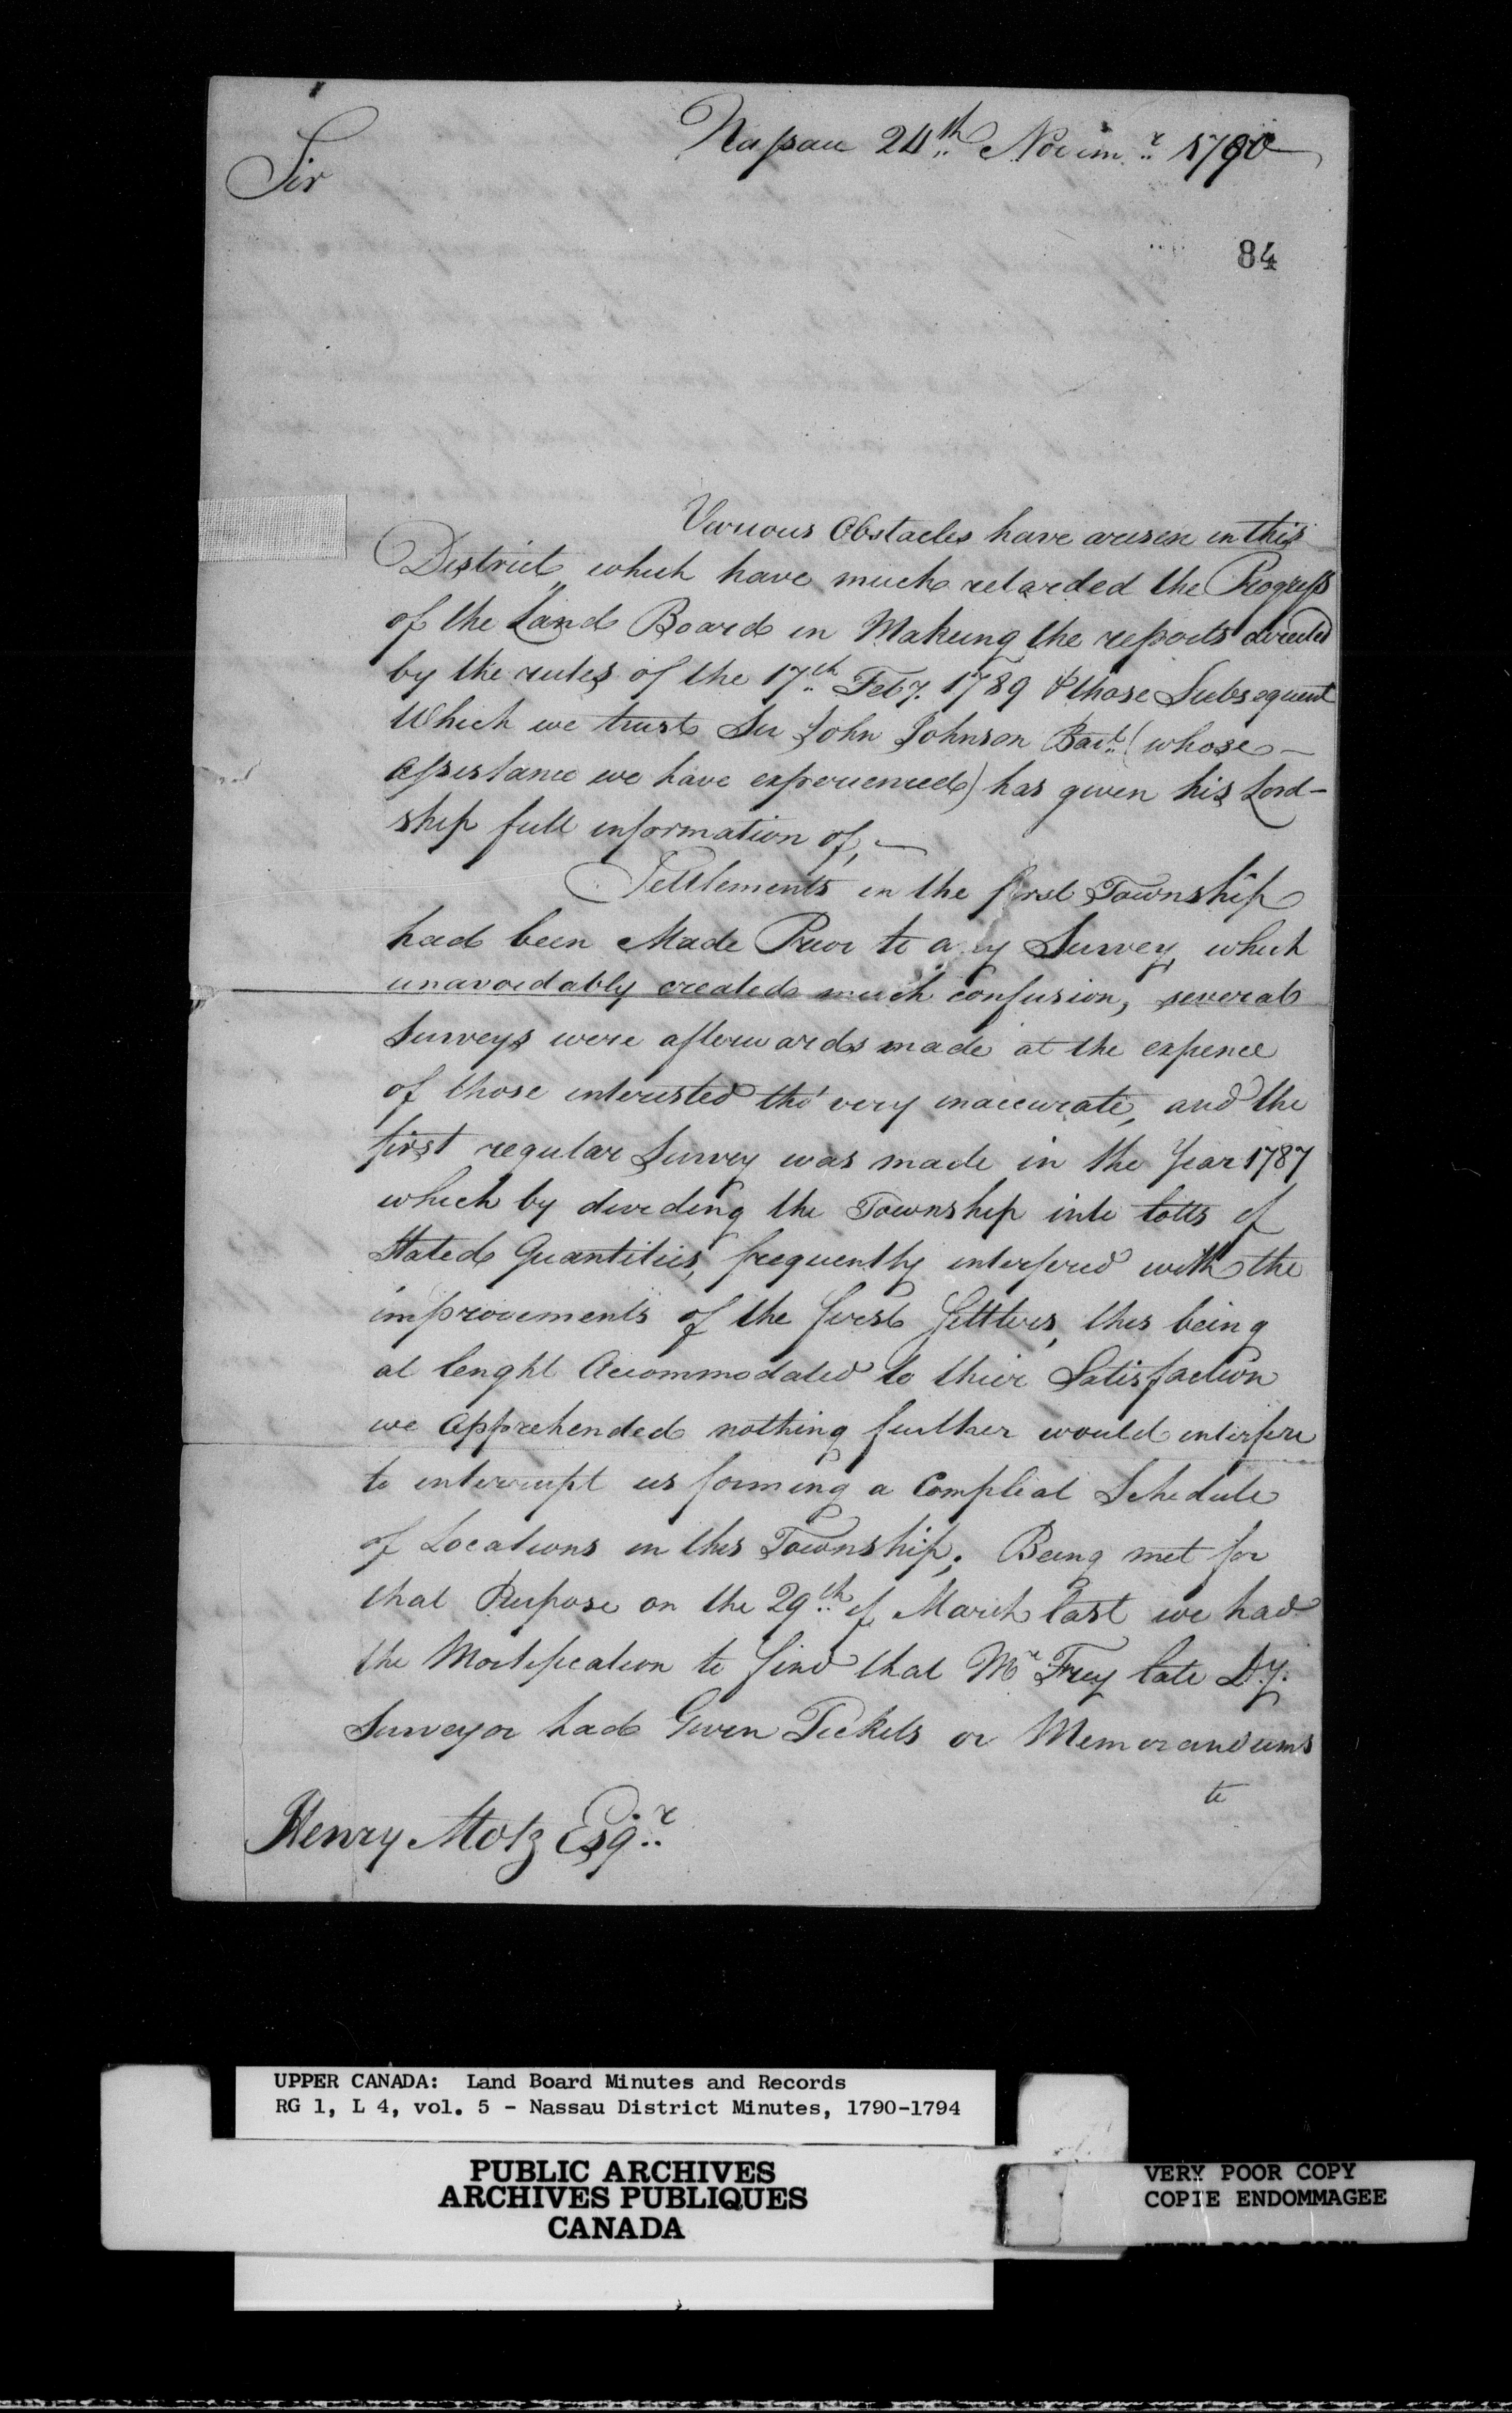 Nassau 24th Novemr 1790
Sir
84
Various Obstacles have arisen in this
District which have much retarded the Progress
of the Land Board in Makeing the reports directed
by the rules of the 17th Feby. 1789 & those Subsequent
Which we trust Sir John Johnson Bart. (whose
assistance we have experienced) has given his Lord-
ship full information of,
Settlements in the first Township
had been Made Prior to any Survey, which
unavoidably created much confusion, several
Surveys were afterwards made at the expence
of those interested tho' very inaccurate, and the
first regular Survey was made in the Year 1787
which by divideing the Township into lotts of
Stated Quantities, frequently interfered with the
improvements of the first Settlers, this being
at lenght Accommodated to their Satisfaction
we apprehended nothing further would interfere
to interrupt us forming a Compleat Schedule
of Locations in this Township; Being met for
that Purpose on the 29th of March last we had
the Mortification to find that Mr Frey late Dy.
Surveyor had Given Tickets or Memorandums
to
Henry Motz Esqr
UPPER CANADA: Land Board Minutes and Records
RG 1, L 4, vol. 5 - Nassau District Minutes, 1790-1794
PUBLIC ARCHIVES
ARCHIVES PUBLIQUES
CANADA
VERY POOR COPY
COPIE ENDOMMAGEE